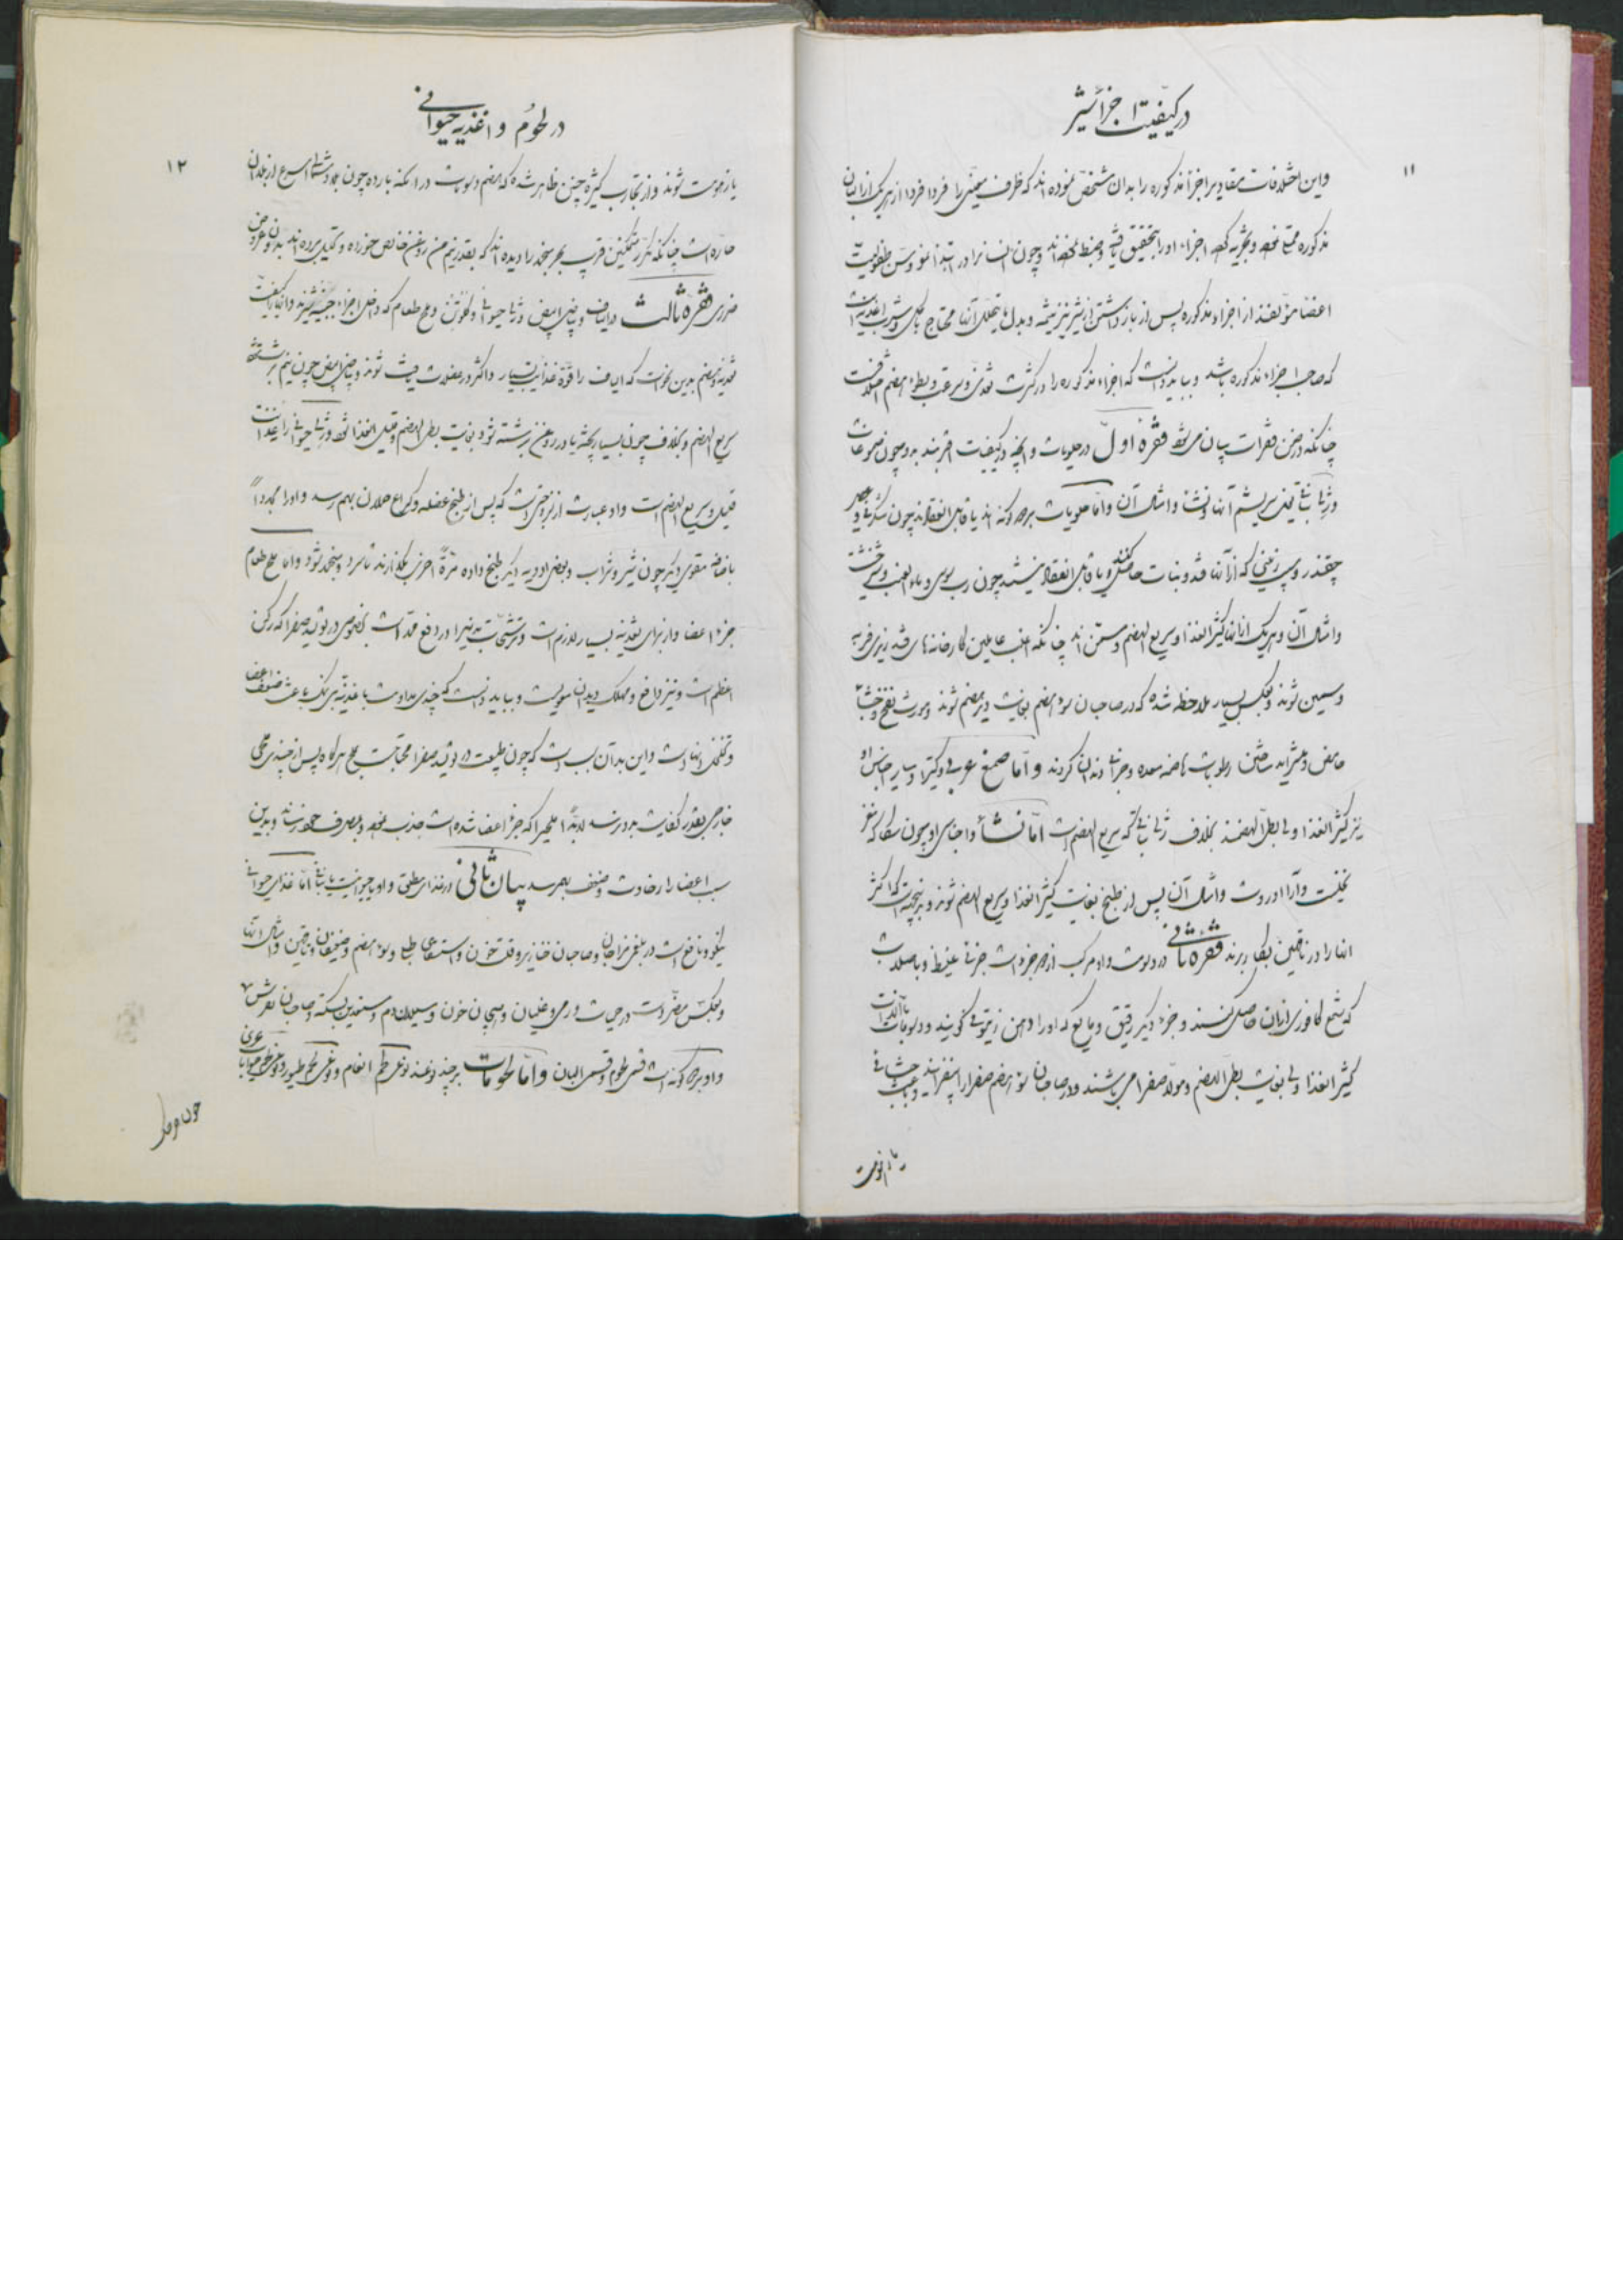 در کیفیت اجزا شیر
۱۱
واین اختلافات مقادیر اجزا مذکوره را بدان مشخص نموده اند که ظرف معینی را فردا فردا از هریک از البان
مذکوره ممتع نموده و تجزیه کرده اجزاء او را بتحقیق و ضبط نموده اند و چون انسان را در ابتدا نمو و سن طفولیت
اعضا مؤلفند از اجزاء مذکوره پس از باز داشتن از شیر نیز تنمیه و بدل ما یتحلل آنها محتاج باکل و شرب اغذیه است
که صاحب اجزاء مذکوره باشد و بباید دانست که اجزاء مذکوره را در کثرت تغذی و سرعت و بطؤ هضم اختلاف است
چنانکه در ضمن فقرات بیان می شود فقره اول در حلویات و آنچه در کیفیات اقربند بدو چون صموغات
و ژلا نباتی یعنی سریشم آنها و نشا و امثال آن و اما حلویات بر دو گونه اند یا قابل انعقادند چون شکر نی و
چقندر و سیب زمینی که از آنها قند و نبات حاصل کنند و یا قابل انعقاد نیستند چون رب سوس و ماء العنب و شیرخشت
وامثال آن و هریک از اینها کثیر الغذا و سریع الهضم و مسمن اند چنانکه اغلب عاملین کارخانه های قند ریزی فربه
وسمین شوند و بعکس بسیار ملاحظه شده که در صاحبان سوء هضم بغایت دیر هضم شوند و مورث نفخ و جشاء
حامض و متغیر ساختن رطوبات هاضمه معده و خرابی دندان گردند و اما صمغ عربی و کتیرا و سایر اجناس او
نیز کثیر الغذا ولی بطئ الهضمند بخلاف ژلا نباتی که سریع الهضم است اما نشا و اجناس او چون ساگو که مغز
نخلیست و آراروت و امثال آن پس از طبخ بغایت کثیر الغذا و سریع الهضم شوند و بدینجهت است که اکثر
آنها را در ناقهین بکار برند فقره ثانی در دسومت و او مرکب از دو جزء است جزئی غلیظ و با صلابت
که شمع کافوری از آن حاصل کنند و جزء دیگر رقیق و مایع که او را دهن زیتونی گویند و دسومات با آنکه
کثیر الغذا ولی بغایت بطئ الهضم و مولد صفرا می باشند و در صاحبان سوء هضم صفرا را بیفزایند و باعث جشاء
در لحوم و اغذیه حیوانی
۱۲
یا زهومت شوند و از تجارب کثیره چنین ظاهر شده که هضم دسومات در امکنه بارده چون بلاد شمالی اسرع از بلدان
حاره است چنانکه مکرر متمکنین قرب بحر منجمد را دیده اند که بقدر نیم من روغن خالص خورده و تحلیل برده اند بدون عروض
ضرری فقره ثالث در الیاف و بیاض البیض و ژلا حیوانی و گلوتن و ملح طعام که داخل اجزاء جبنیه شیرند و اینها را کیفیت
تغذیه و هضم بدین نحو است که الیاف را قوه غذائیت بسیار و اکثر در عضلات یافت شوند و بیاض البیض چون نیم برشته
سریع الهضم و بخلاف چون بسیار پخته یا در روغن برشته شود بغایت بطئ الهضم و قلیل الغذا شود و ژلا حیوانی را غذائیت
قلیل و سریع الهضم است و او عبارت از لزوجتی است که پس از طبخ عضله و کراع حلان بهم رسد و او را مجدداً
باضافه مقوی دیگر چون شیر و شراب و بعضی ادویه دیگر طبخ داده مرةً اخری بگذارند تا سرد و منجمد شود و اما ملح طعام
جزء اعضا و از برای تغذیه بسیار لازم است و ترشحات بدنیه را در دفع مدد است بخصوص در تولید صفرا که رکن
اعظم است و نیز دافع و مهلک دیدان معویست و بباید دانست که چندی مداومت باغذیه بی نمک باعث ضعف اعضا
و تخلخل آنهاست و این بدان سبب است که چون طبیعت در تولید صفرا محتاجست بملح هرگاه پس از چندی ملحی
خارجی بقدر کفایت بدو نرسد لابداً ملحی را که جزء اعضا شده است جذب نموده و بمصرف خود رساند و بدین
سبب اعضا را رخاوت و ضعف بهم رسد بیان ثانی در غذای مطلق و او یا حیوانیست یا نباتی اما غذای حیوانی
نیکو و نافع است در بلغمی مزاجان و صاحبان خنازیر و قلت خون و استسقاء طبلی و سوء هضم و ضعیفان و ناقهین و امثال آنها
و بعکس مضر است در حمیات ورمی و غلیان و هیجان خون و سیلان دم و مستعدین بسکته و صاحبان نقرس
و او بر دو گونه است قسمی لحوم و قسمی البان و اما لحومات بر چند نوعند نوعی لحم انعام و نوعی لحم طیور و نوعی لحوم حیوانات